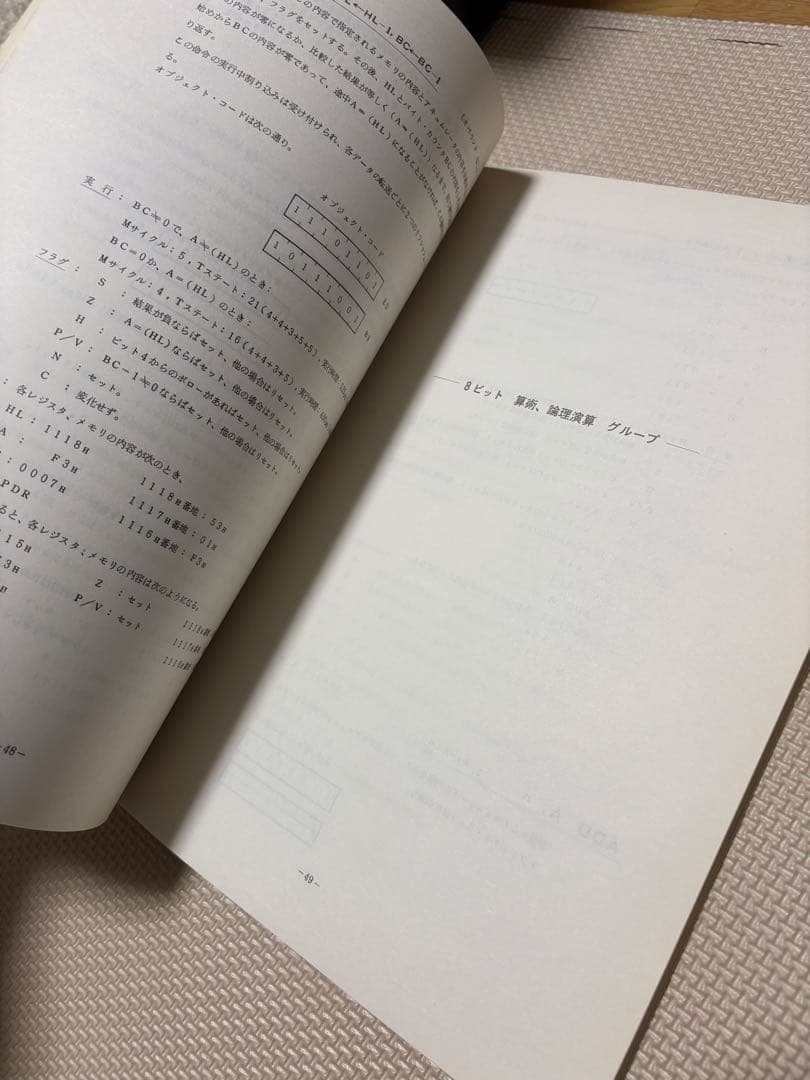 L←HL−1, BC←BC−1
この内容で指定されるメモリの内容とアキュムレータの内容
、フラグをセットする。その後、HLとバイト・カウンタBCの
の内容が零になるか、比較した結果が等しく(A=(HL))なるまで
始めからBCの内容が零であって、途中A=(HL)になることがなければ、
り返す。
この命令の実行中割り込みは受け付けられ、各データの転送ごとに2つの
る。
オブジェクト・コードは次の通り。
オブジェクト・コード
1 1 1 0 1 1 0 1
1 0 1 1 1 0 0 1
実 行 : BC≠0で、A≠(HL)のとき:
Mサイクル:5, Tステート:21(4+4+3+5+5), 実行時間:
BC=0か、A=(HL)のとき:
Mサイクル:4, Tステート:16(4+4+3+5), 実行時間:
フラグ : S : 結果が負ならばセット、他の場合はリセット。
Z : A=(HL)ならばセット、他の場合はリセット。
H : ビット4からのボローがあればセット、他の場合はリセット。
P/V : BC−1≠0ならばセット、他の場合はリセット。
N : セット。
C : 変化せず。
: 各レジスタ、メモリの内容が次のとき、
HL : 1118H 1118H番地 : 53H
A : F3H 1117H番地 : 01H
: 0007H 1116H番地 : F3H
PDR
ると、各レジスタ、メモリの内容は次のようになる。
15H Z : セット 1118H番地
3H P/V : セット 1117H番地
H 1116H番地
−48−
8ビット 算術、論理演算 グループ
−49−